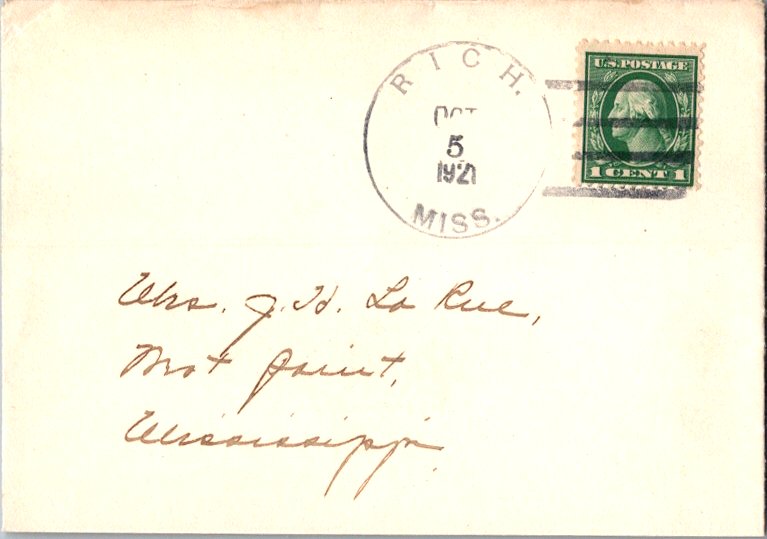 RICH.
OCT
5
1921
MISS.
U.S. POSTAGE
1 CENT 1
Mrs. J. H. La Rue,
Mot Point,
Mississippi